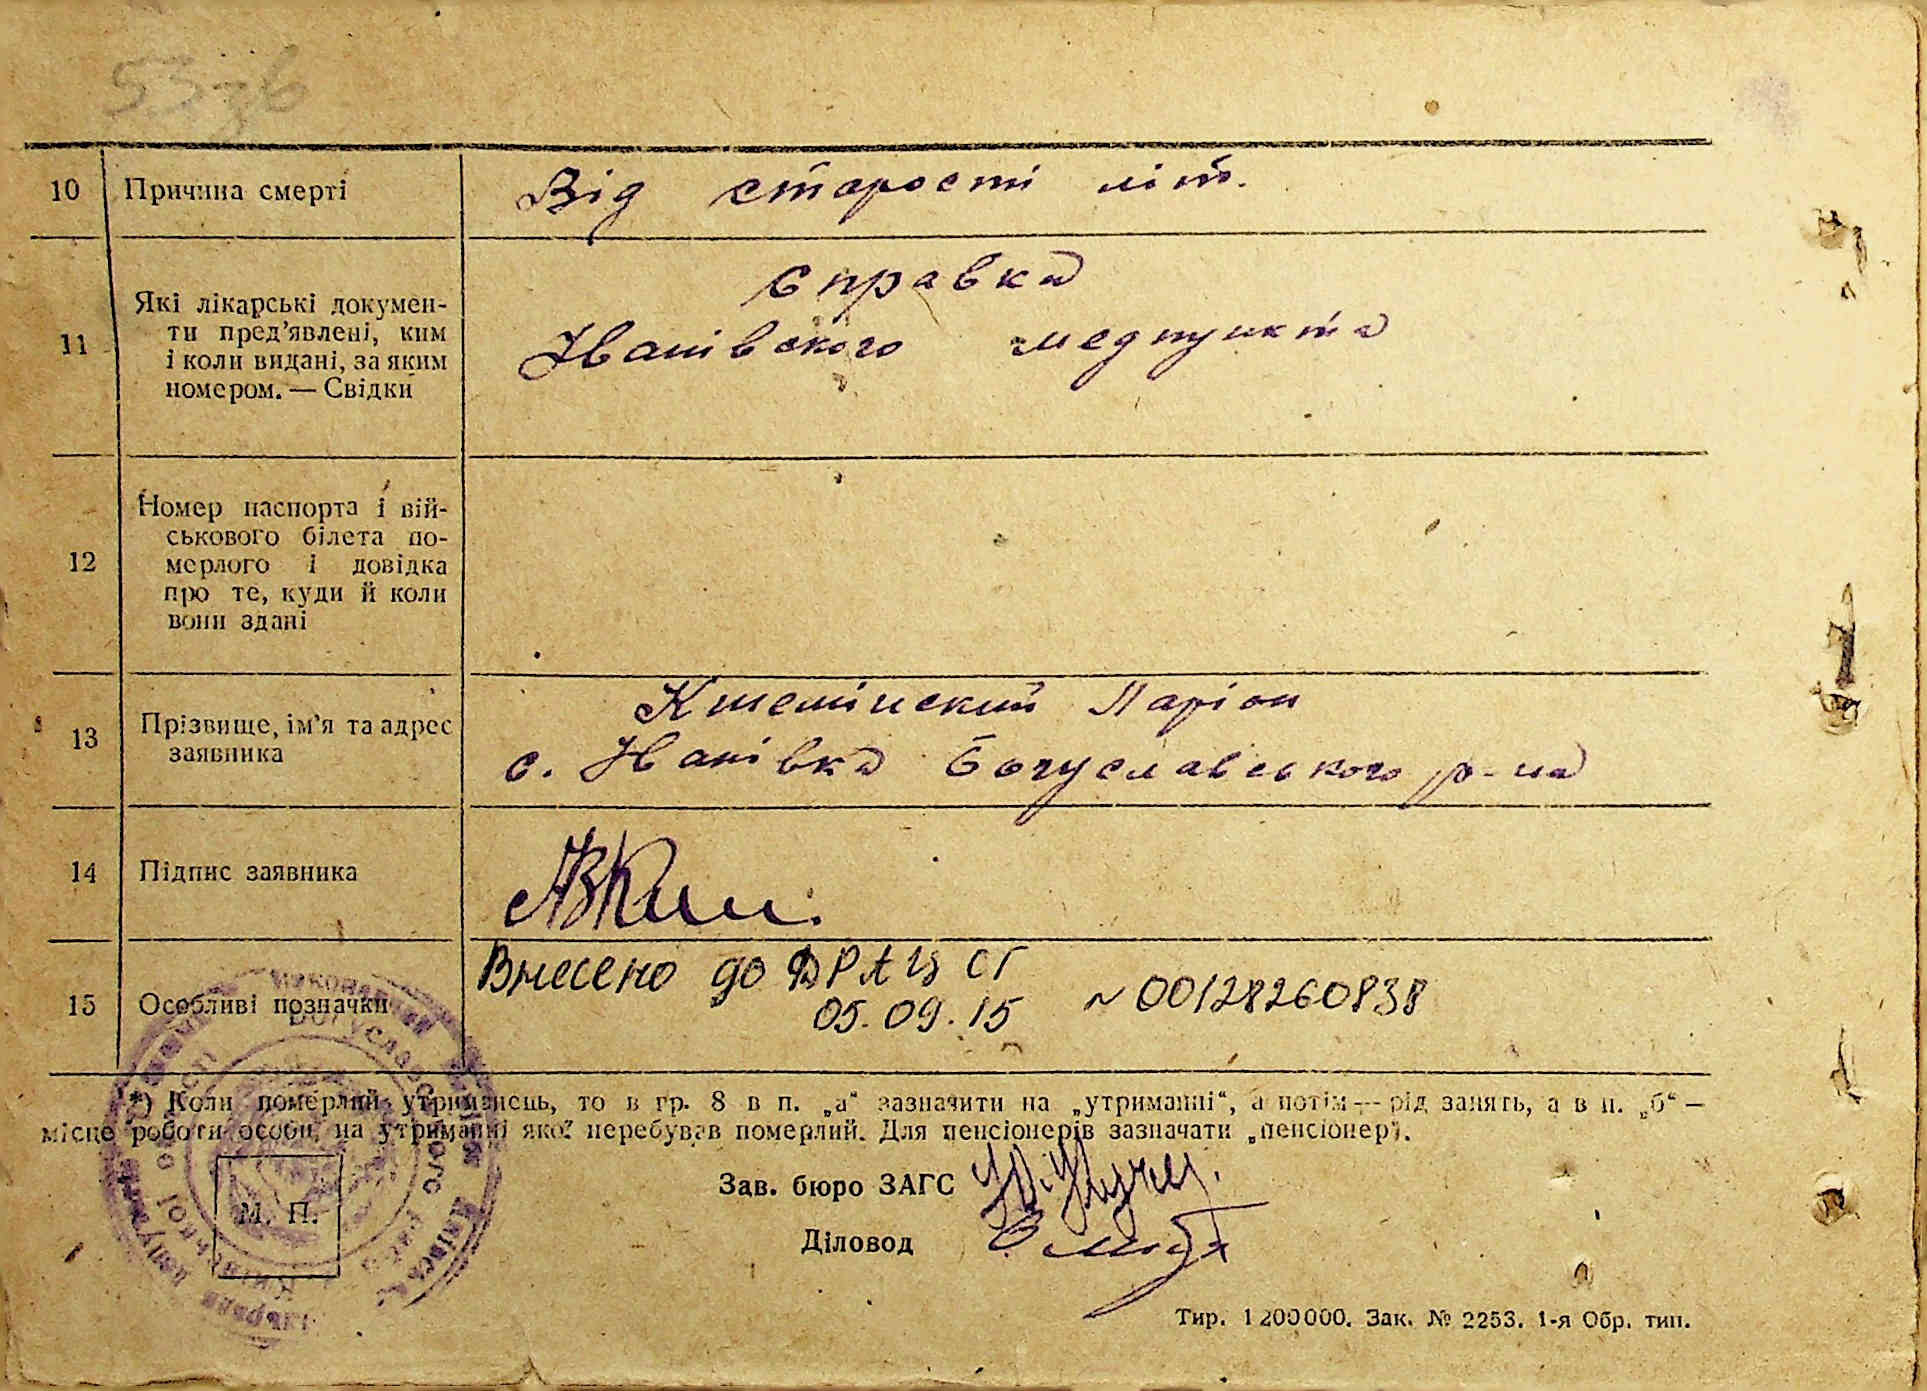 53зв
10 Причина смерті Від старости літ.
11 Які лікарські докумен-
ти пред'явлені, ким
і коли видані, за яким
номером. — Свідки
Справка
Іванівського медпункта
12 Номер паспорта і вій-
ськового білета по-
мерлого і довідка
про те, куди й коли
вони здані
13 Прізвище, ім'я та адрес
заявника
Ларіон
с. Іванівка Богуславського р-на
14 Підпис заявника
15 Особливі позначки
Внесено до ДРАЦ СГ
05.09.15 № 00128260838
*) Коли померлий утриманець, то в гр. 8 в п. „а“ зазначити на „утриманні“, а потім — рід занять, а в п. „б“ —
місце роботи особи, на утриманні якої перебував померлий. Для пенсіонерів зазначати „пенсіонер“.
М. П.
Зав. бюро ЗАГС
Діловод
Тир. 1200000. Зак. № 2253. 1-я Обр. тип.